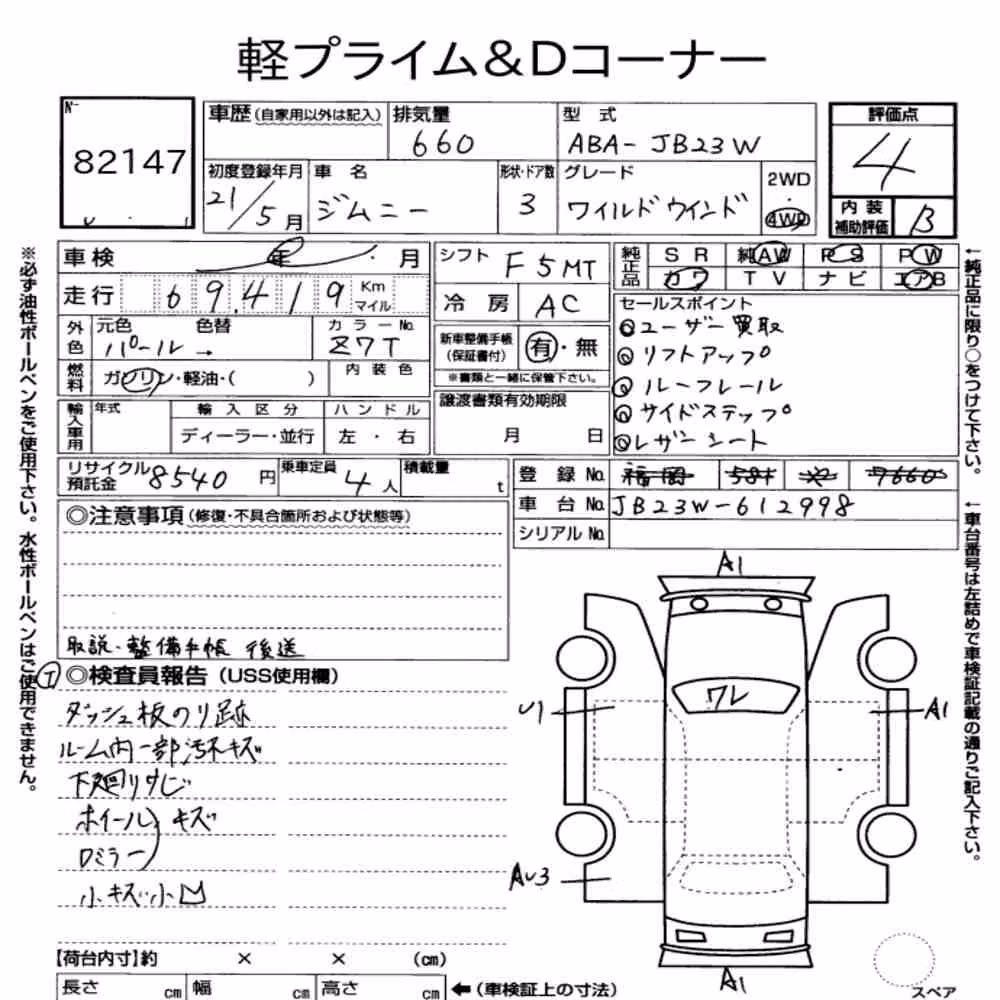 軽プライム&Dコーナー
No 82147
車歴(自家用以外は記入) 排気量 660 型式 ABA-JB23W
初度登録年月 21/5月 車名 ジムニー 形状・ドア数 3 グレード ワイルドウインド 2WD・4WD
評価点 4
内装補助評価 B
車検 年 ・ 月
走行 69,419 Km マイル
外色 元色 パール → 色替 カラーNo. Z7T
燃料 ガソリン・軽油・( ) 内装色
輸入車用 年式 輸入区分 ディーラー・並行 ハンドル 左・右
シフト F5MT
冷房 AC
新車整備手帳(保証書付) 有・無
※書類と一緒に保管下さい。
譲渡書類有効期限 月 日
純正品 SR 純AW PS PW
カワ TV ナビ エアB
セールスポイント
◎ユーザー買取
◎リフトアップ
◎ルーフレール
◎サイドステップ
◎レザーシート
リサイクル預託金 8540円 乗車定員 4人 積載量 t
登録No. 福岡 581 7660
車台No. JB23W-612998
シリアルNo.
◎注意事項(修復・不具合箇所および状態等)
取説・整備手帳 後送
◎検査員報告(USS使用欄)
ダッシュ板のり跡
ルーム内一部汚れキズ
下廻りサビ
ホイール キズ
Dミラー
小キズ小凹
A1
ワレ
U1
A1
AU3
A1
スペア
【荷台内寸】約 × × (cm)
長さ cm 幅 cm 高さ cm ←(車検証上の寸法)
※必ず油性ボールペンをご使用下さい。水性ボールペンはご使用できません。
←純正品に限り○をつけて下さい。
←車台番号は左詰めで車検証記載の通りご記入下さい。